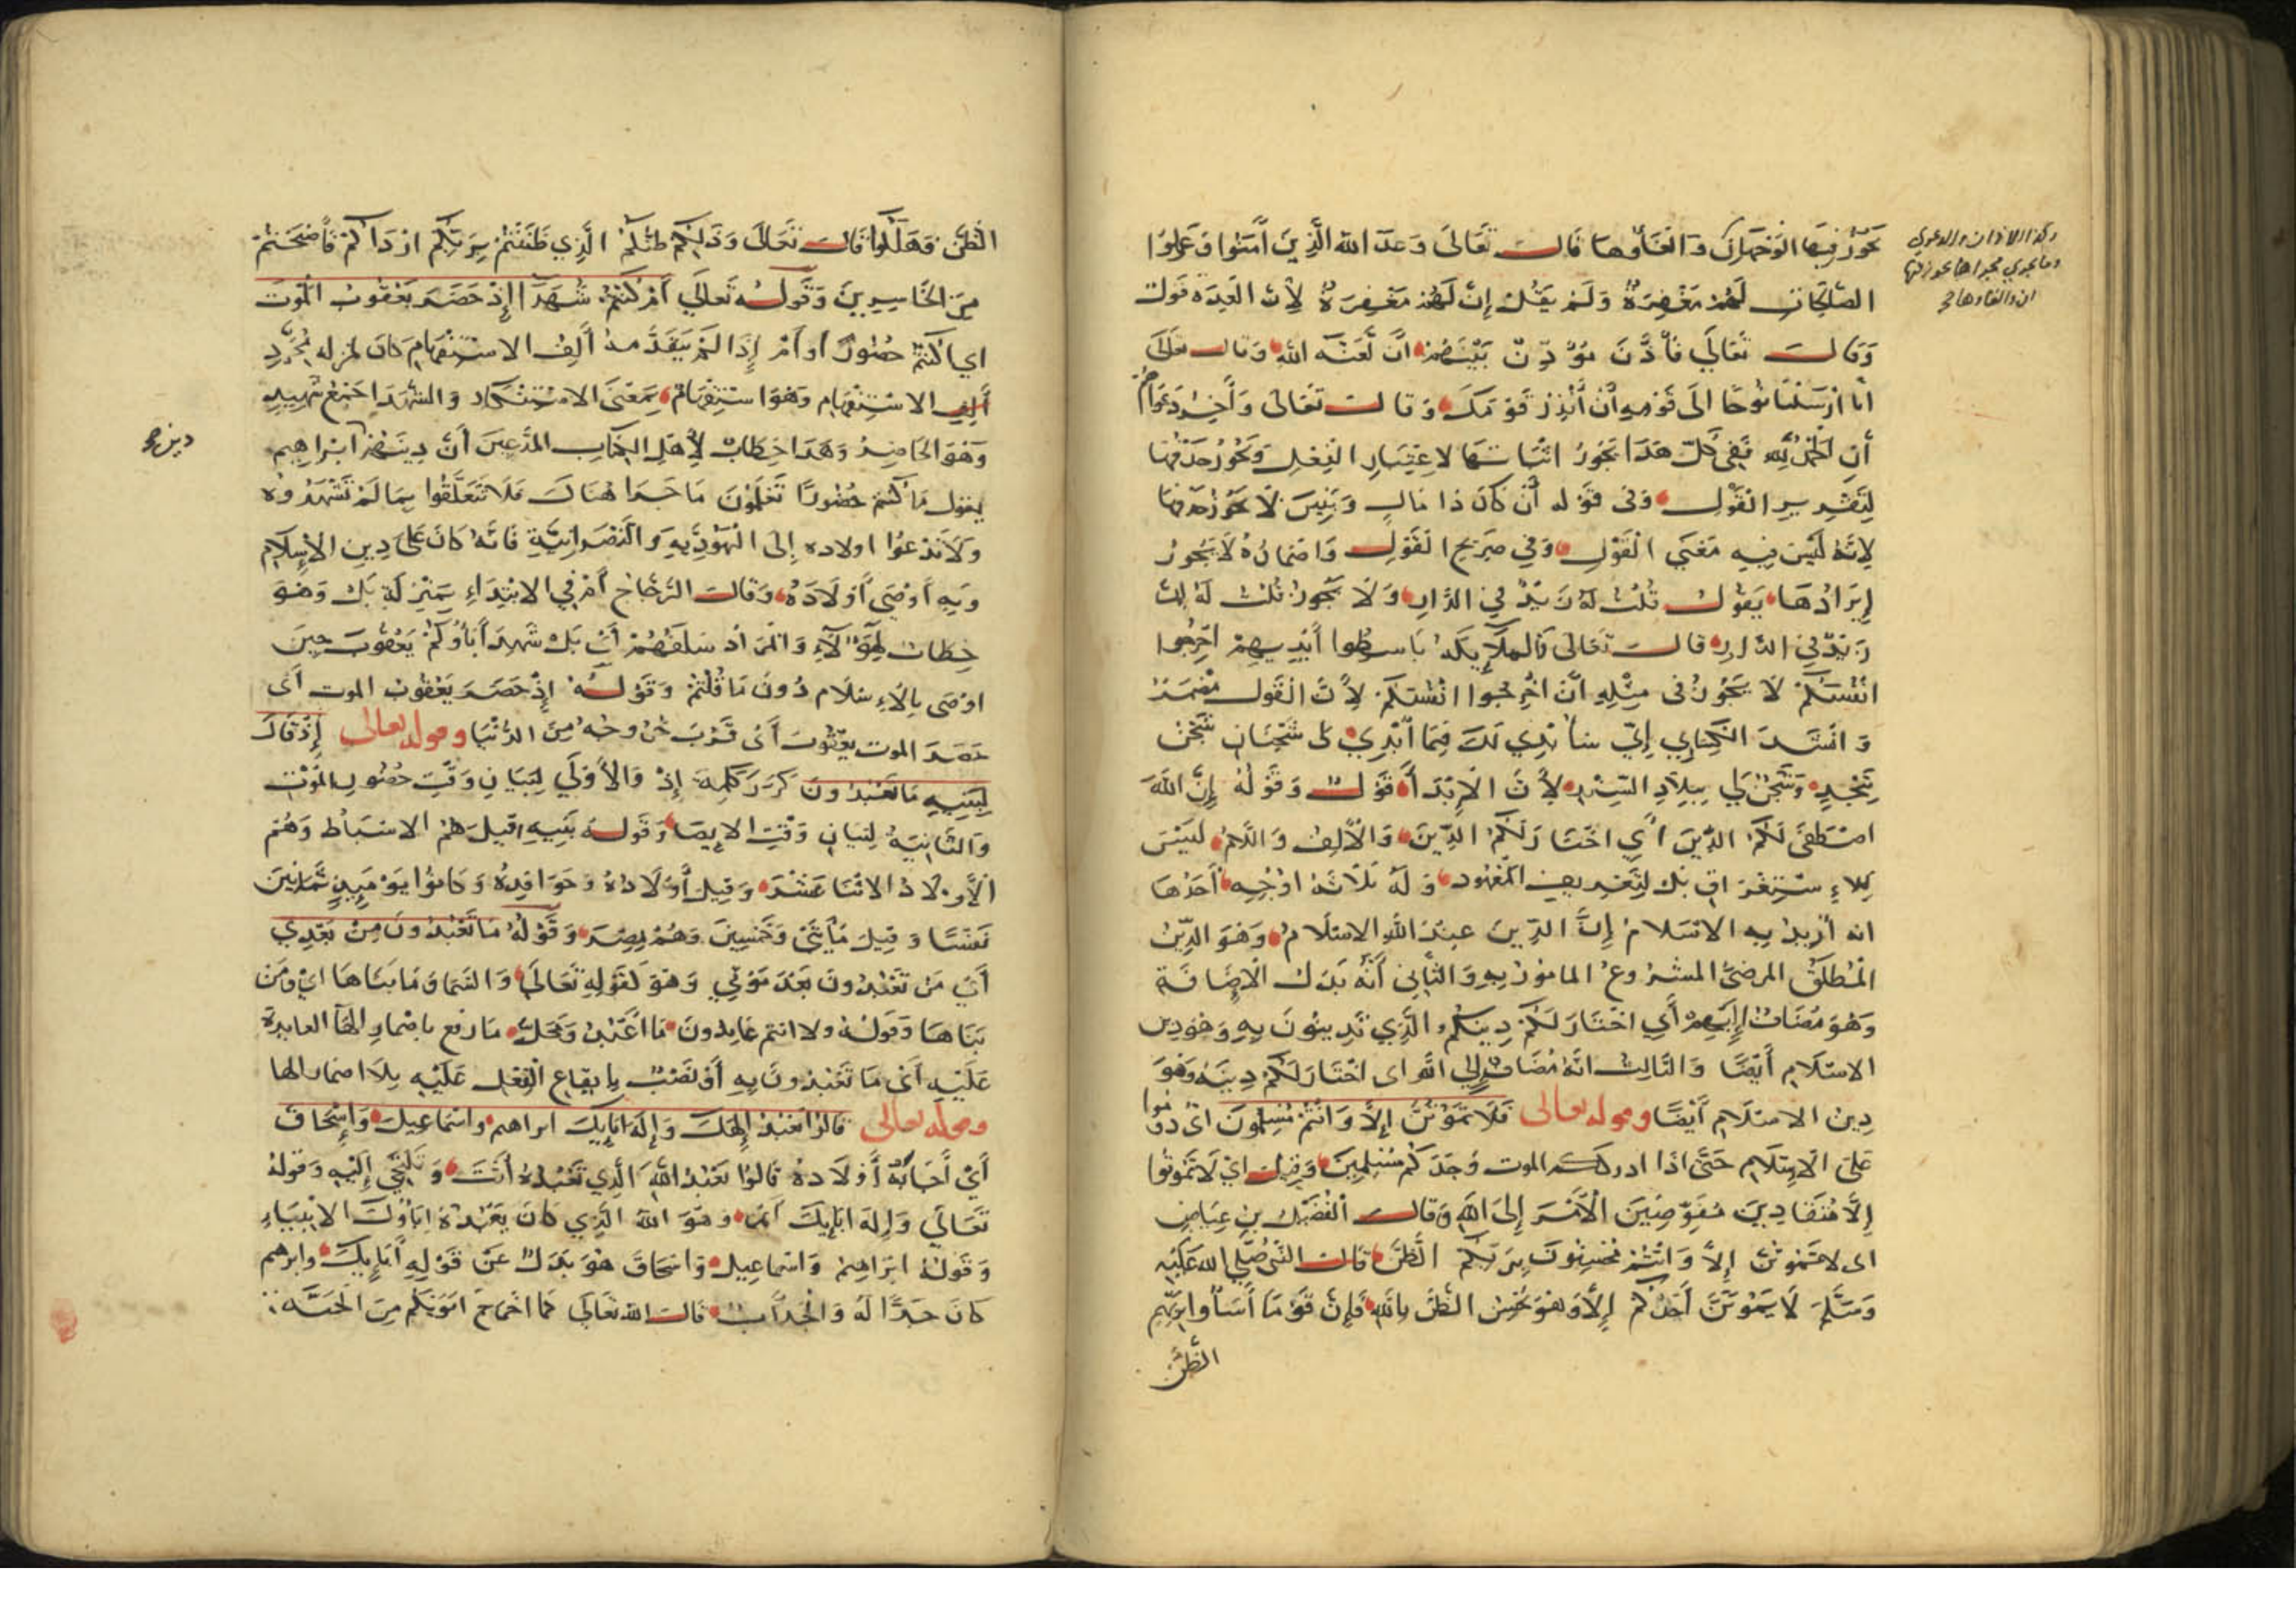 يجوز فيها الوجهان والغاؤها قال تعالى وعد الله الذين آمنوا وعملوا
الصالحات لهم مغفرة ولم يقل إن لهم مغفرة لأن العدة قول
وقال تعالى فأذن مؤذن بينهم أن لعنة الله وقال تعالى
انا ارسلنا نوحا الى قومه أن أنذر قومك وقال تعالى وآخر دعواهم
أن الحمد لله ففي كل هذا يجوز اثباتها لاعتبار الفعل ويجوز حذفها
لتقدير القول وفي قوله أن كان ذا مال وبنين لا يجوز حذفها
لانه ليس فيه معنى القول وفي صريح القول واضماره لا يجوز
إيرادها يقول قلت له زيد في الدار ولا يجوز قلت له ان
زيد في الدار قال تعالى والملائكة باسطوا أيديهم اخرجوا
انفسكم لا يجوز في مثله أن اخرجوا انفسكم لأن القول مضمر
وانشد الكسائي إني سأبدي لك فيما أبدي لي شجنان شجن
بنجد وشجن لي ببلاد السند لأن الإبداء قول وقوله إن الله
اصطفى لكم الدين أي اختار لكم الدين والألف واللام ليس
للاستغراق بل لتعريف المعهود وله ثلاثة اوجه أحدها
انه أريد به الاسلام إن الدين عند الله الاسلام وهو الدين
المطلق المرضي المشروع المامور به والثاني أنه بدل الاضافة
وهو مضاف إليهم أي اختار لكم دينكم الذي تدينون به وهو دين
الاسلام أيضا والثالث انه مضاف إلى الله اى اختار لكم دينه وهو
دين الاسلام أيضا وقوله تعالى فلا تموتن إلا وأنتم مسلمون اى دوموا
على الاسلام حتى اذا ادرككم الموت وجدكم مسلمين وقيل اي لا تموتوا
إلا منقادين مفوضين الأمر إلى الله وقال الفضيل بن عياض
اى لا تموتن إلا وانتم محسنون بربكم الظن قال النبي صلى الله عليه
وسلم لا يموتن أحدكم إلا وهو يحسن الظن بالله فإن قوما أساؤا بربهم
الظن
وكذا الاذان والدعوى
وما يجري مجراها يجوز فيها
ان والغاوها صح
الظن فهلكوا قال تعالى وذلكم ظنكم الذي ظننتم بربكم ارداكم فأصبحتم
من الخاسرين وقوله تعالى أم كنتم شهداء إذ حضر يعقوب الموت
اي اكنتم حضورا وأم إذا لم يتقدمه ألف الاستفهام كان لمجرد
ألف الاستفهام وهو استفهام بمعنى الاستنكار والشهدا جمع شهيد
وهو الحاضر وهذا خطاب لأهل الكتاب المدعين أن دينهم ابراهيم
دين صح
يقول ما كنتم حضورا تعلمون ما جرا هناك فلا تتعلقوا بما لم تشهدوه
ولا تدعوا اولاده إلى اليهودية والنصرانية فانه كان على دين الاسلام
وبه أوصى أولاده وقال الزجاج أم في الابتداء بمنزلة بل وهو
خطاب لهؤلاء والمراد سلفهم أي بل شهد أباؤكم يعقوب حين
اوصى بالإسلام دون ما قلتم وقوله إذ حضر يعقوب الموت أى
حضر الموت يعقوب أى قرب خروجه من الدنيا وقوله تعالى إذ قال
لبنيه ما تعبدون كرر كلمة إذ والأولى لبيان وقت حضور الموت
والثانية لبيان وقت الايصاء وقوله بنيه قيل هم الاسباط وهم
الأولاد الاثنا عشر وقيل أولاده وحوافده وكانوا يومئذ ثمانين
نفسا وقيل مأتى وخمسين وهم بمصر وقوله ما تعبدون من بعدي
أي من تعبدون بعد موتي وهو كقوله تعالى والسما وما بناها اي ومن
بناها وقوله ولا انتم عابدون ما اعبد ومحل ما رفع باضمار الها العايدة
عليه أى ما تعبدونه أو نصب بايقاع الفعل عليه بلا اضمار الها
وقوله تعالى قالوا نعبد إلهك وإله آبايك ابراهيم واسماعيل وإسحاق
أي أجابه أولاده قالوا نعبد الله الذي تعبده أنت وقوله
تعالى وإله ابايك وهو الله الذي كان يعبده اباؤك الانبياء
وقوله ابراهيم واسماعيل واسحاق هو بدل عن قوله أبايك وابرهيم
كان جدا له والجد أب قال الله تعالى كما اخرج ابويكم من الجنة